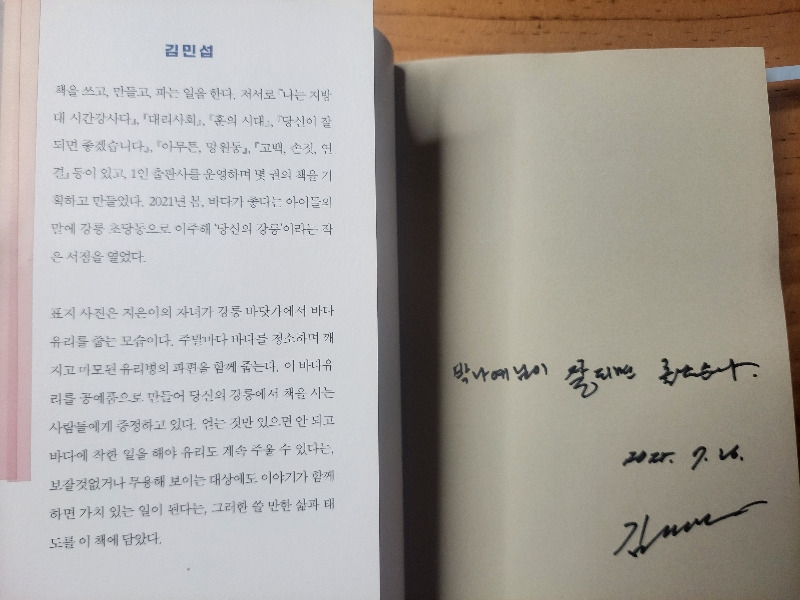 김민섭
책을 쓰고, 만들고, 파는 일을 한다. 저서로 『나는 지방
대 시간강사다』, 『대리사회』, 『훈의 시대』, 『당신이 잘
되면 좋겠습니다』, 『아무튼, 망원동』, 『고백, 손짓, 연
결』 등이 있고, 1인 출판사를 운영하며 몇 권의 책을 기
획하고 만들었다. 2021년 봄, 바다가 좋다는 아이들의
말에 강릉 초당동으로 이주해 '당신의 강릉'이라는 작
은 서점을 열었다.
표지 사진은 지은이의 자녀가 강릉 바닷가에서 바다
유리를 줍는 모습이다. 주말마다 바다를 청소하며 깨
지고 마모된 유리병의 파편을 함께 줍는다. 이 바다유
리를 공예품으로 만들어 당신의 강릉에서 책을 사는
사람들에게 증정하고 있다. 얻는 것만 있으면 안 되고
바다에 착한 일을 해야 유리도 계속 주울 수 있다는,
보잘것없거나 무용해 보이는 대상에도 이야기가 함께
하면 가치 있는 일이 된다는, 그러한 쓸 만한 삶과 태
도를 이 책에 담았다.
박나예님이 잘 되면 좋겠습니다.
7. 26.
김